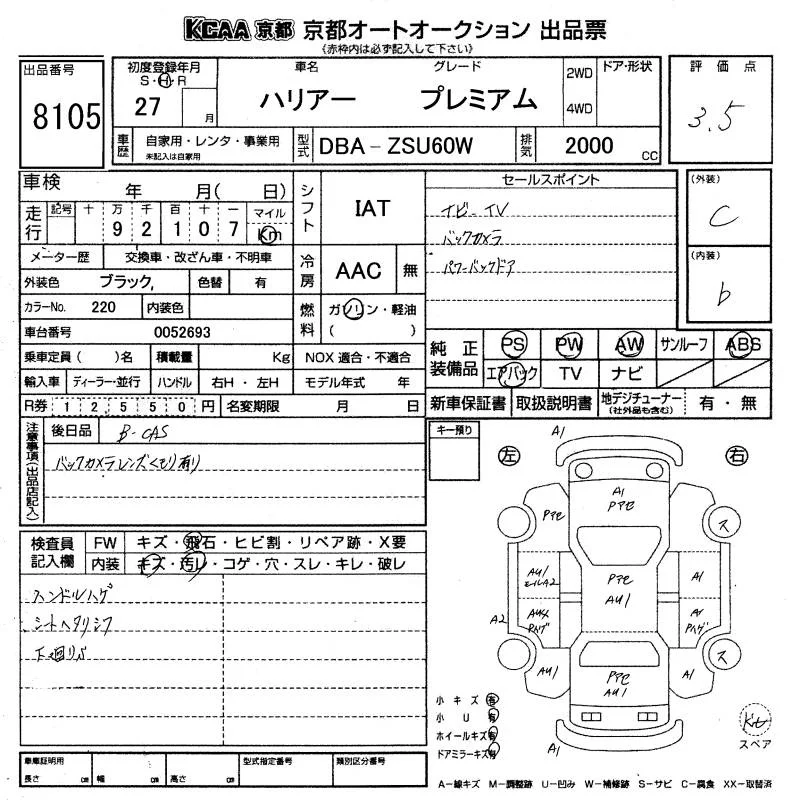 KCAA 京都 京都オートオークション 出品票
《赤枠内は必ず記入して下さい》
出品番号
8105
初度登録年月
S・H・R
27 月
車名 グレード
ハリアー プレミアム
2WD
4WD
ドア・形状
評価点
3.5
車歴 自家用・レンタ・事業用
未記入は自家用
型式 DBA-ZSU60W
排気 2000 CC
車検 年 月( 日)
走行 記号 十 万 千 百 十 一 マイル
9 2 1 0 7 Km
メーター歴 交換車・改ざん車・不明車
外装色 ブラック, 色替 有
カラーNo. 220 内装色
車台番号 0052693
乗車定員( )名 積載量 Kg
輸入車 ディーラー・並行 ハンドル 右H・左H
R券 1 2 5 5 0 円 名変期限 月 日
シフト IAT
冷房 AAC 無
燃料 ガソリン・軽油
( )
NOX 適合・不適合
モデル年式 年
セールスポイント
ナビ-TV
バックカメラ
パワーバックドア
(外装)
C
(内装)
b
純正装備品 PS PW AW サンルーフ ABS
エアバック TV ナビ
新車保証書 取扱説明書 地デジチューナー
(社外品も含む) 有・無
注意事項(出品店記入)
後日品 B-CAS
バックカメラレンズくもり有り
検査員記入欄
FW キズ・飛石・ヒビ割・リペア跡・X要
内装 キズ・汚レ・コゲ・穴・スレ・キレ・破レ
ハンドルハゲ
シートヘタリシワ
下廻りサビ
キー預り
左
右
A1
A1
Pアセ
Pアセ
ス
AU1
モールA2
Pアセ
AU1
A1
A2
Pハゲ
A1
Pハゲ
ス
AU1
Pアセ
AU1
A1
A1
小キズ 有
小U 有
ホイールキズ 有
ドアミラーキズ 有
スペア
車庫証明用
長さ cm 幅 cm 高さ cm
型式指定番号
類別区分番号
A-線キズ M-調整跡 U-凹み W-補修跡 S-サビ C-腐食 XX-取替済